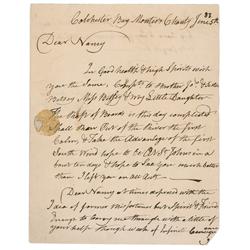 Colchester Bay Montior County June 5th 88
Dear Nancy
In Good health & high Spirits wish
you the Same, to Mother
Nelson Miss Betsy & my Little Daughter
The of Boards is this day Compleated
Shall Put of the River the first
Calm, & Take the Advantage of the first
South Wind hope to be @ St Johns in a
bout ten days & hope to See you much better
than I left you on all
Dear Nancy at times depresed with the
Idea of former misfortunes but Spirit &
Energy to carry me through with a little of
your help through week of Infinite